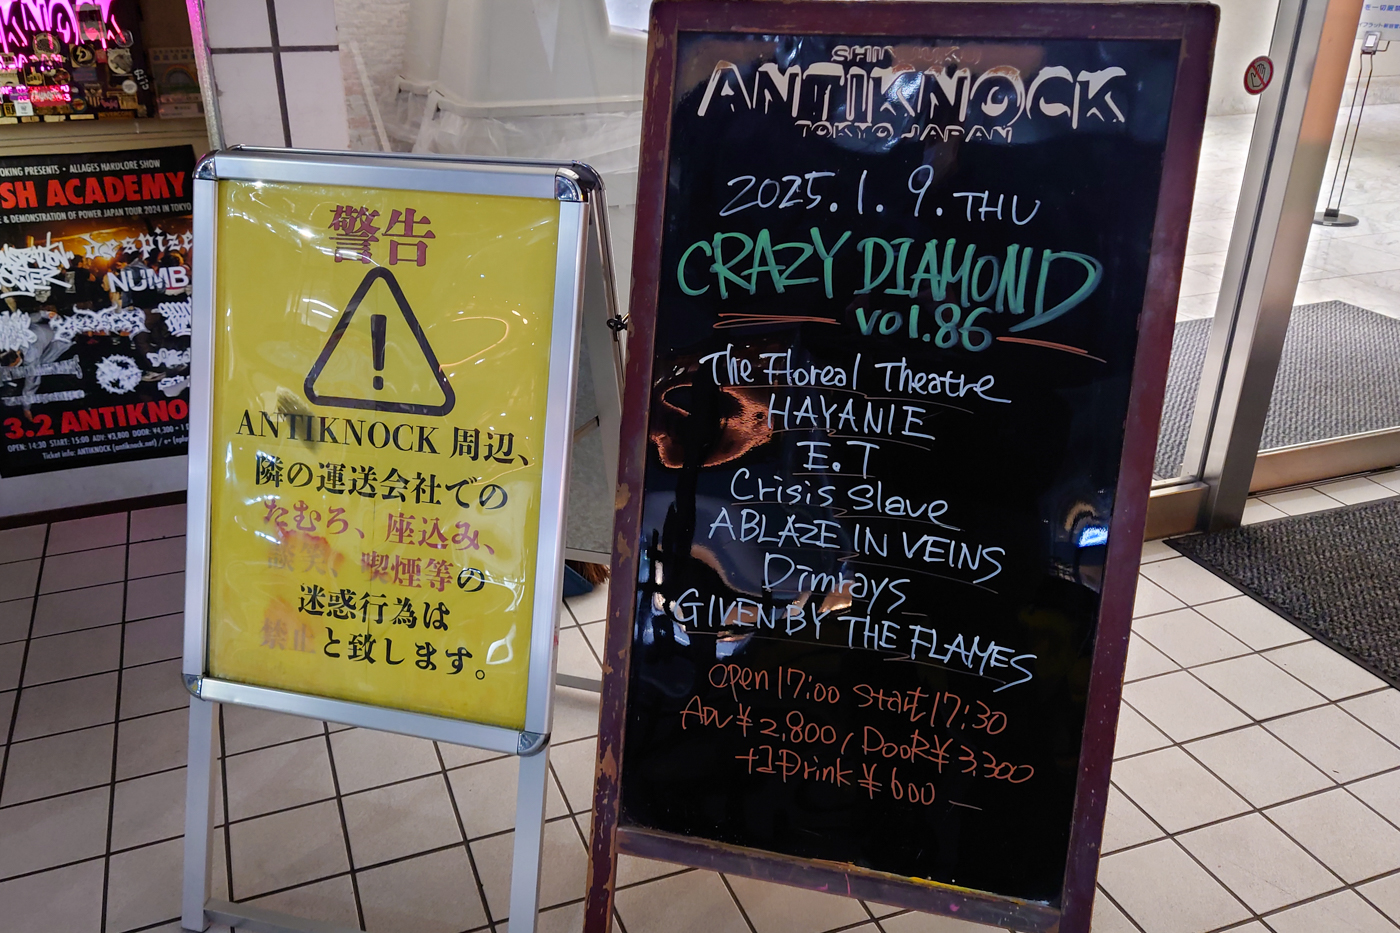 KNOCK
JAPAN
OKING PRESENTS・ALLAGES HARDCORE SHOW
SH ACADEMY
E & DEMONSTRATION OF POWER JAPAN TOUR 2024 IN TOKYO
despize
POWER
NUMB
3.2 ANTIKNO
OPEN: 14:30 START: 15:00 ADV: ¥3,800 DOOR: ¥4,300
Ticket info: ANTIKNOCK (antiknock.net) / e+
警告
ANTIKNOCK 周辺、
隣の運送会社での
たむろ、座込み、
談笑、喫煙等の
迷惑行為は
禁止と致します。
SHIN
ANTIKNOCK
TOKYO JAPAN
2025.1.9.THU
CRAZY DIAMOND
vol.86
The Floreal Theatre
HAYANIE
E.T
Crisis Slave
ABLAZE IN VEINS
Dimrays
GIVEN BY THE FLAMES
Open 17:00 Start 17:30
Adv ¥2,800 / DooR ¥3,300
+1Drink ¥600